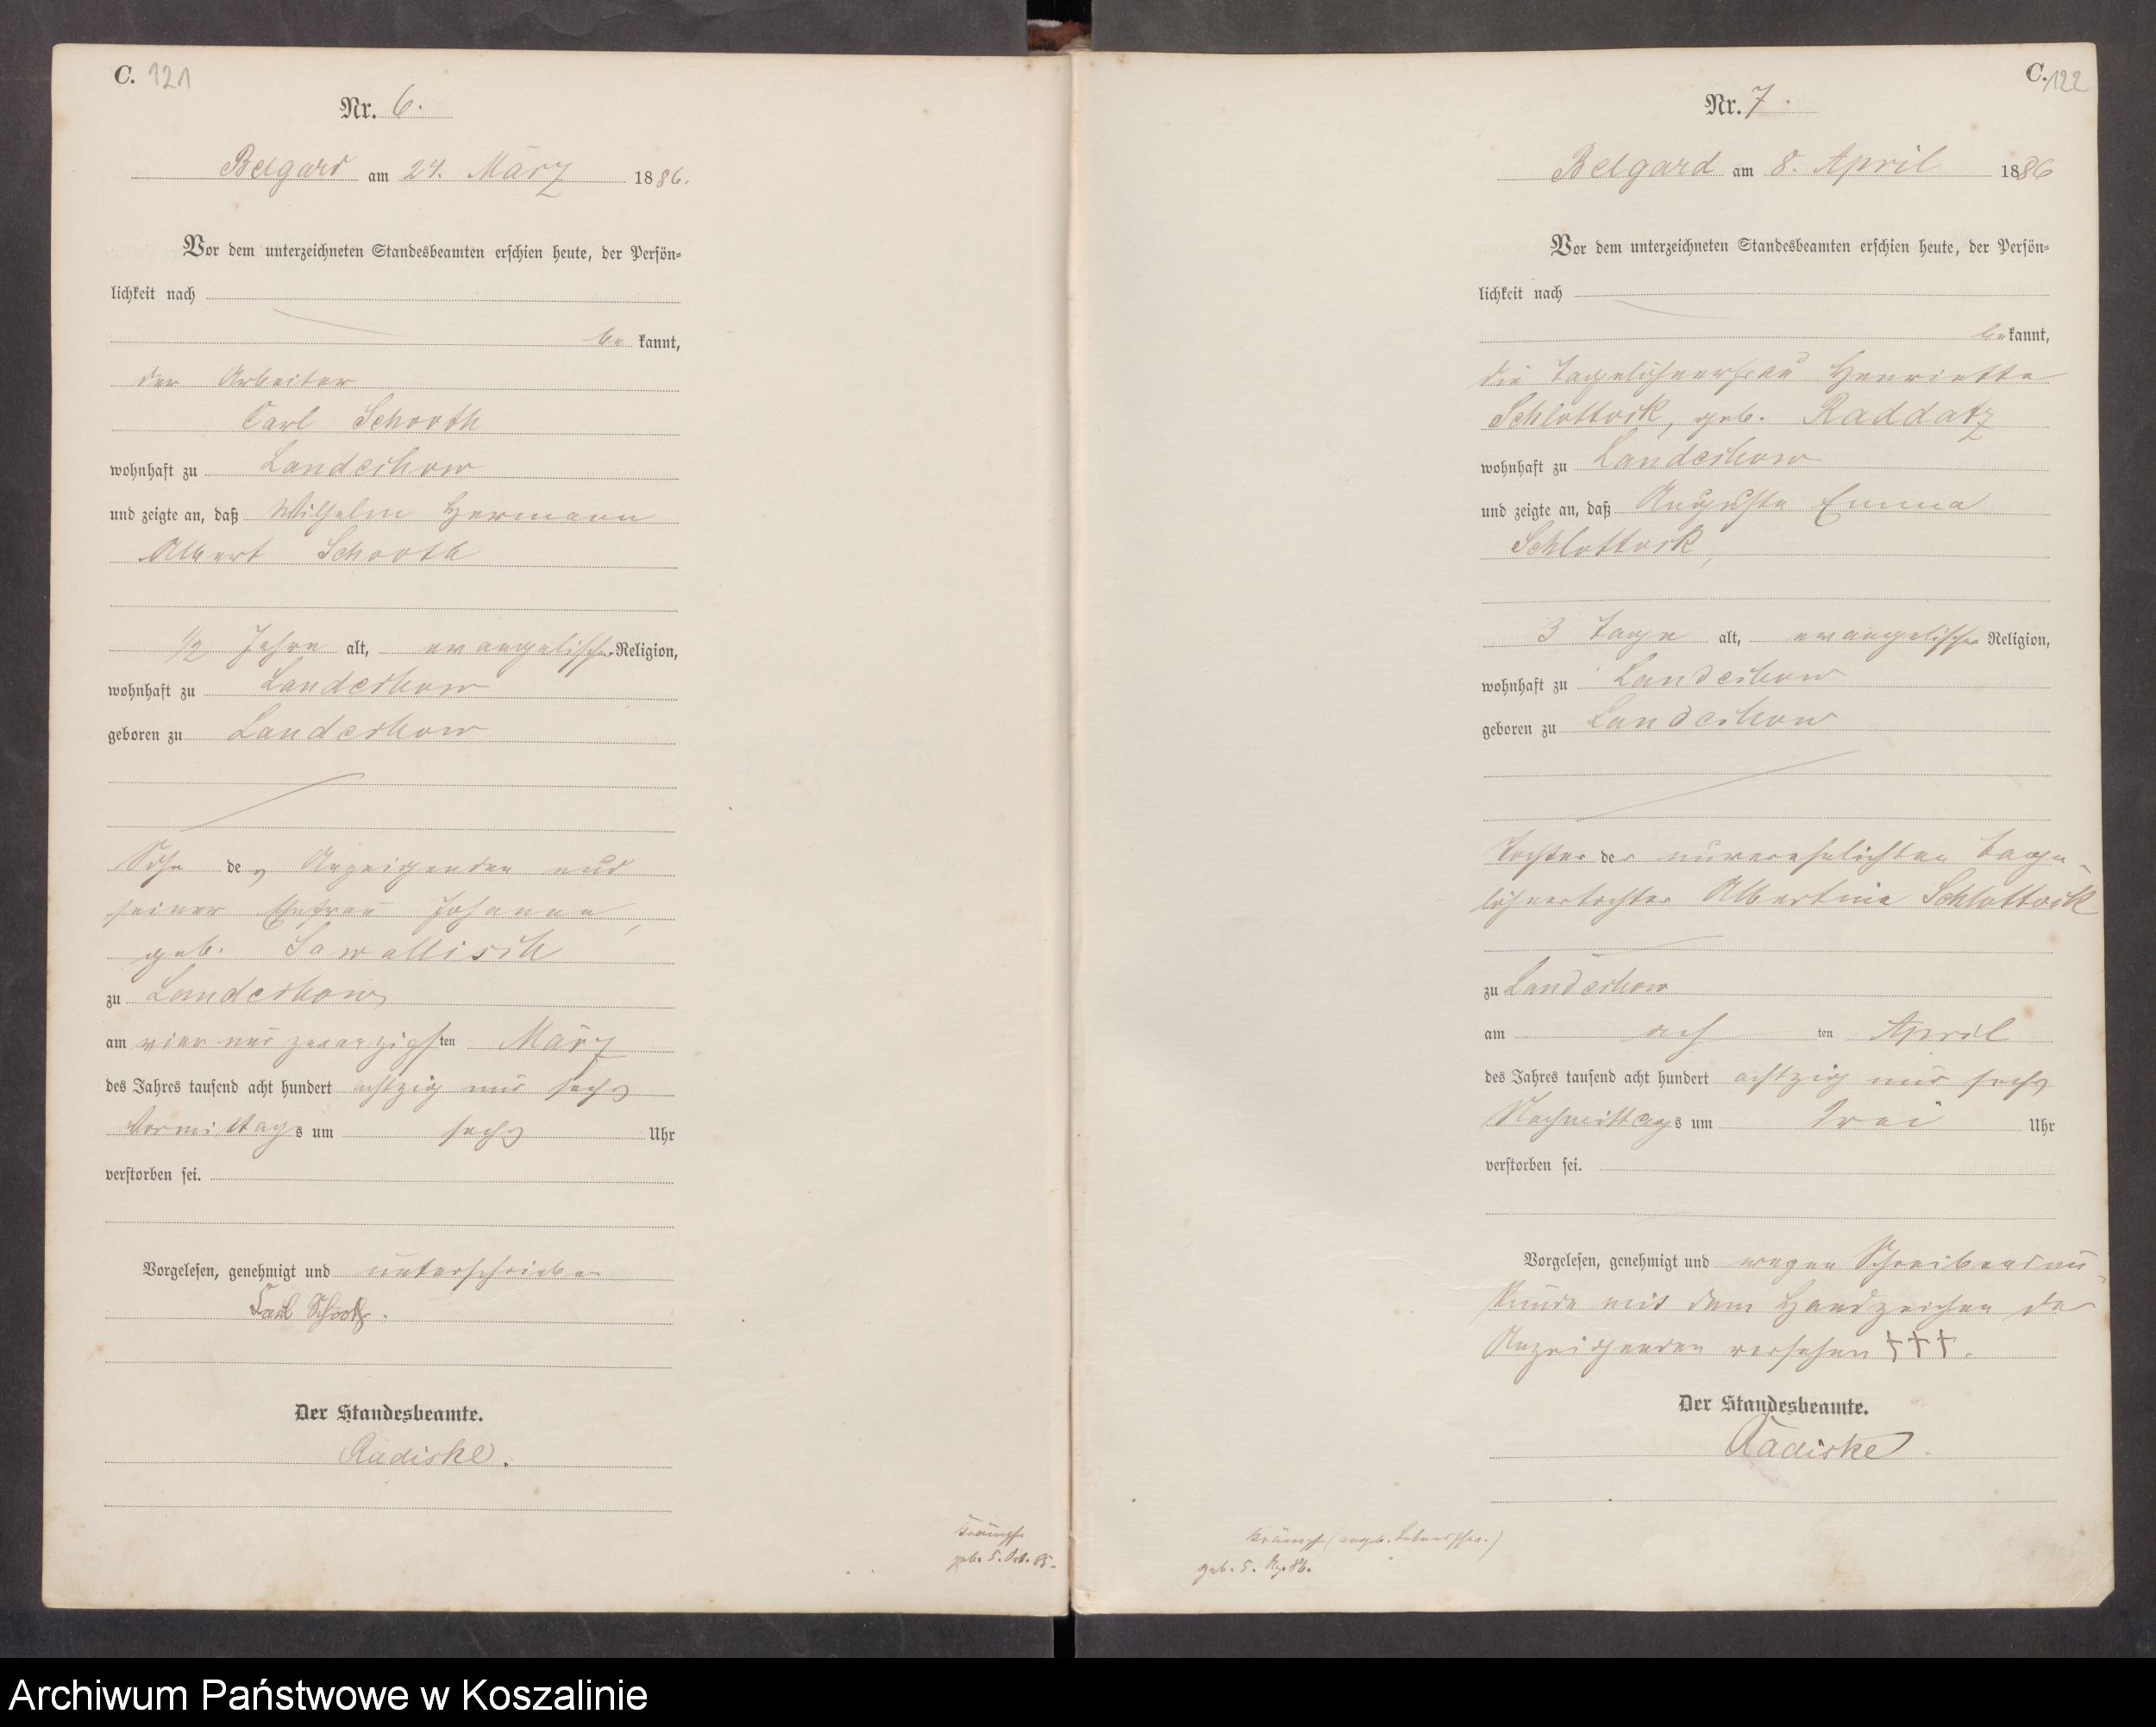 C. 121
Nr. 6.
Belgard am 24. März 1886.
Vor dem unterzeichneten Standesbeamten erschien heute, der Persön-
lichkeit nach
be kannt,
der Arbeiter
Carl Schooth
wohnhaft zu Landechow
und zeigte an, daß Wilhelm Hermann
Albert Schooth
1/2 Jahre alt, evangelischer Religion,
wohnhaft zu Landechow
geboren zu Landechow
Sohn des Anzeigenden und
seiner Ehefrau Johanne,
geb. Sawallisch
zu Landechow
am vier und zwanzigsten März
des Jahres tausend acht hundert achtzig und sechs
Vormittags um sechs Uhr
verstorben sei.
Vorgelesen, genehmigt und unterschrieben
Carl Schooth.
Der Standesbeamte.
Radiske.
Krämpfe
geb. 5. Oct. 85.
C. 122
Nr. 7.
Belgard am 8. April 1886
Vor dem unterzeichneten Standesbeamten erschien heute, der Persön-
lichkeit nach
be kannt,
die Tagelöhnerfrau Henriette
Schlottock, geb. Raddatz
wohnhaft zu Landechow
und zeigte an, daß Auguste Emma
Schlottock,
3 Tage alt, evangelischer Religion,
wohnhaft zu Landechow
geboren zu Landechow
Tochter der unverehelichten Tage-
löhnertochter Albertine Schlottock
zu Landechow
am ach ten April
des Jahres tausend acht hundert achtzig und sechs
Nachmittags um drei Uhr
verstorben sei.
Vorgelesen, genehmigt und wegen Schreibensun-
kunde mit dem Handzeichen der
Anzeigenden versehen †††.
Der Standesbeamte.
Radiske
Krämpfe (angeb.
geb. 5. Ap. 86.
Archiwum Państwowe w Koszalinie